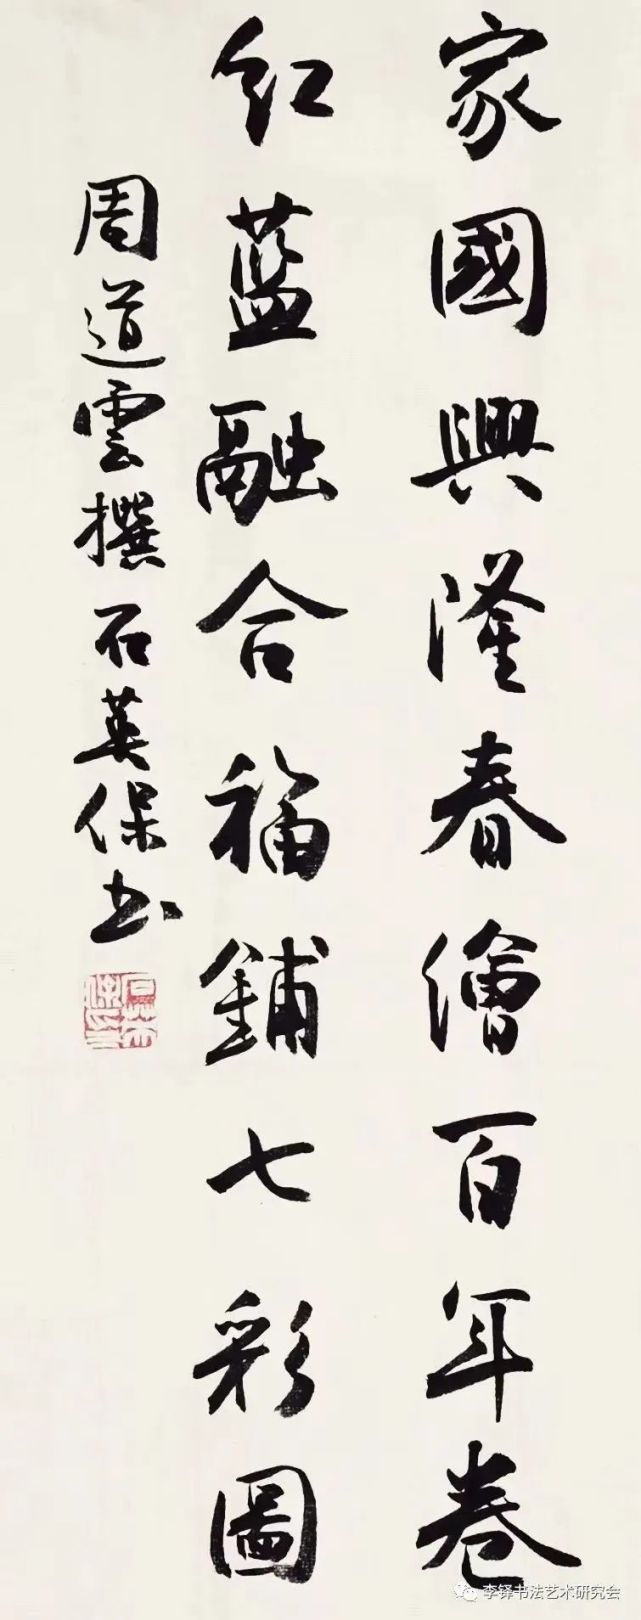 家國興隆春繪百年卷
紅蓝融合福鋪七彩圖
周道雲撰石英保书
石英保印
李铎书法艺术研究会